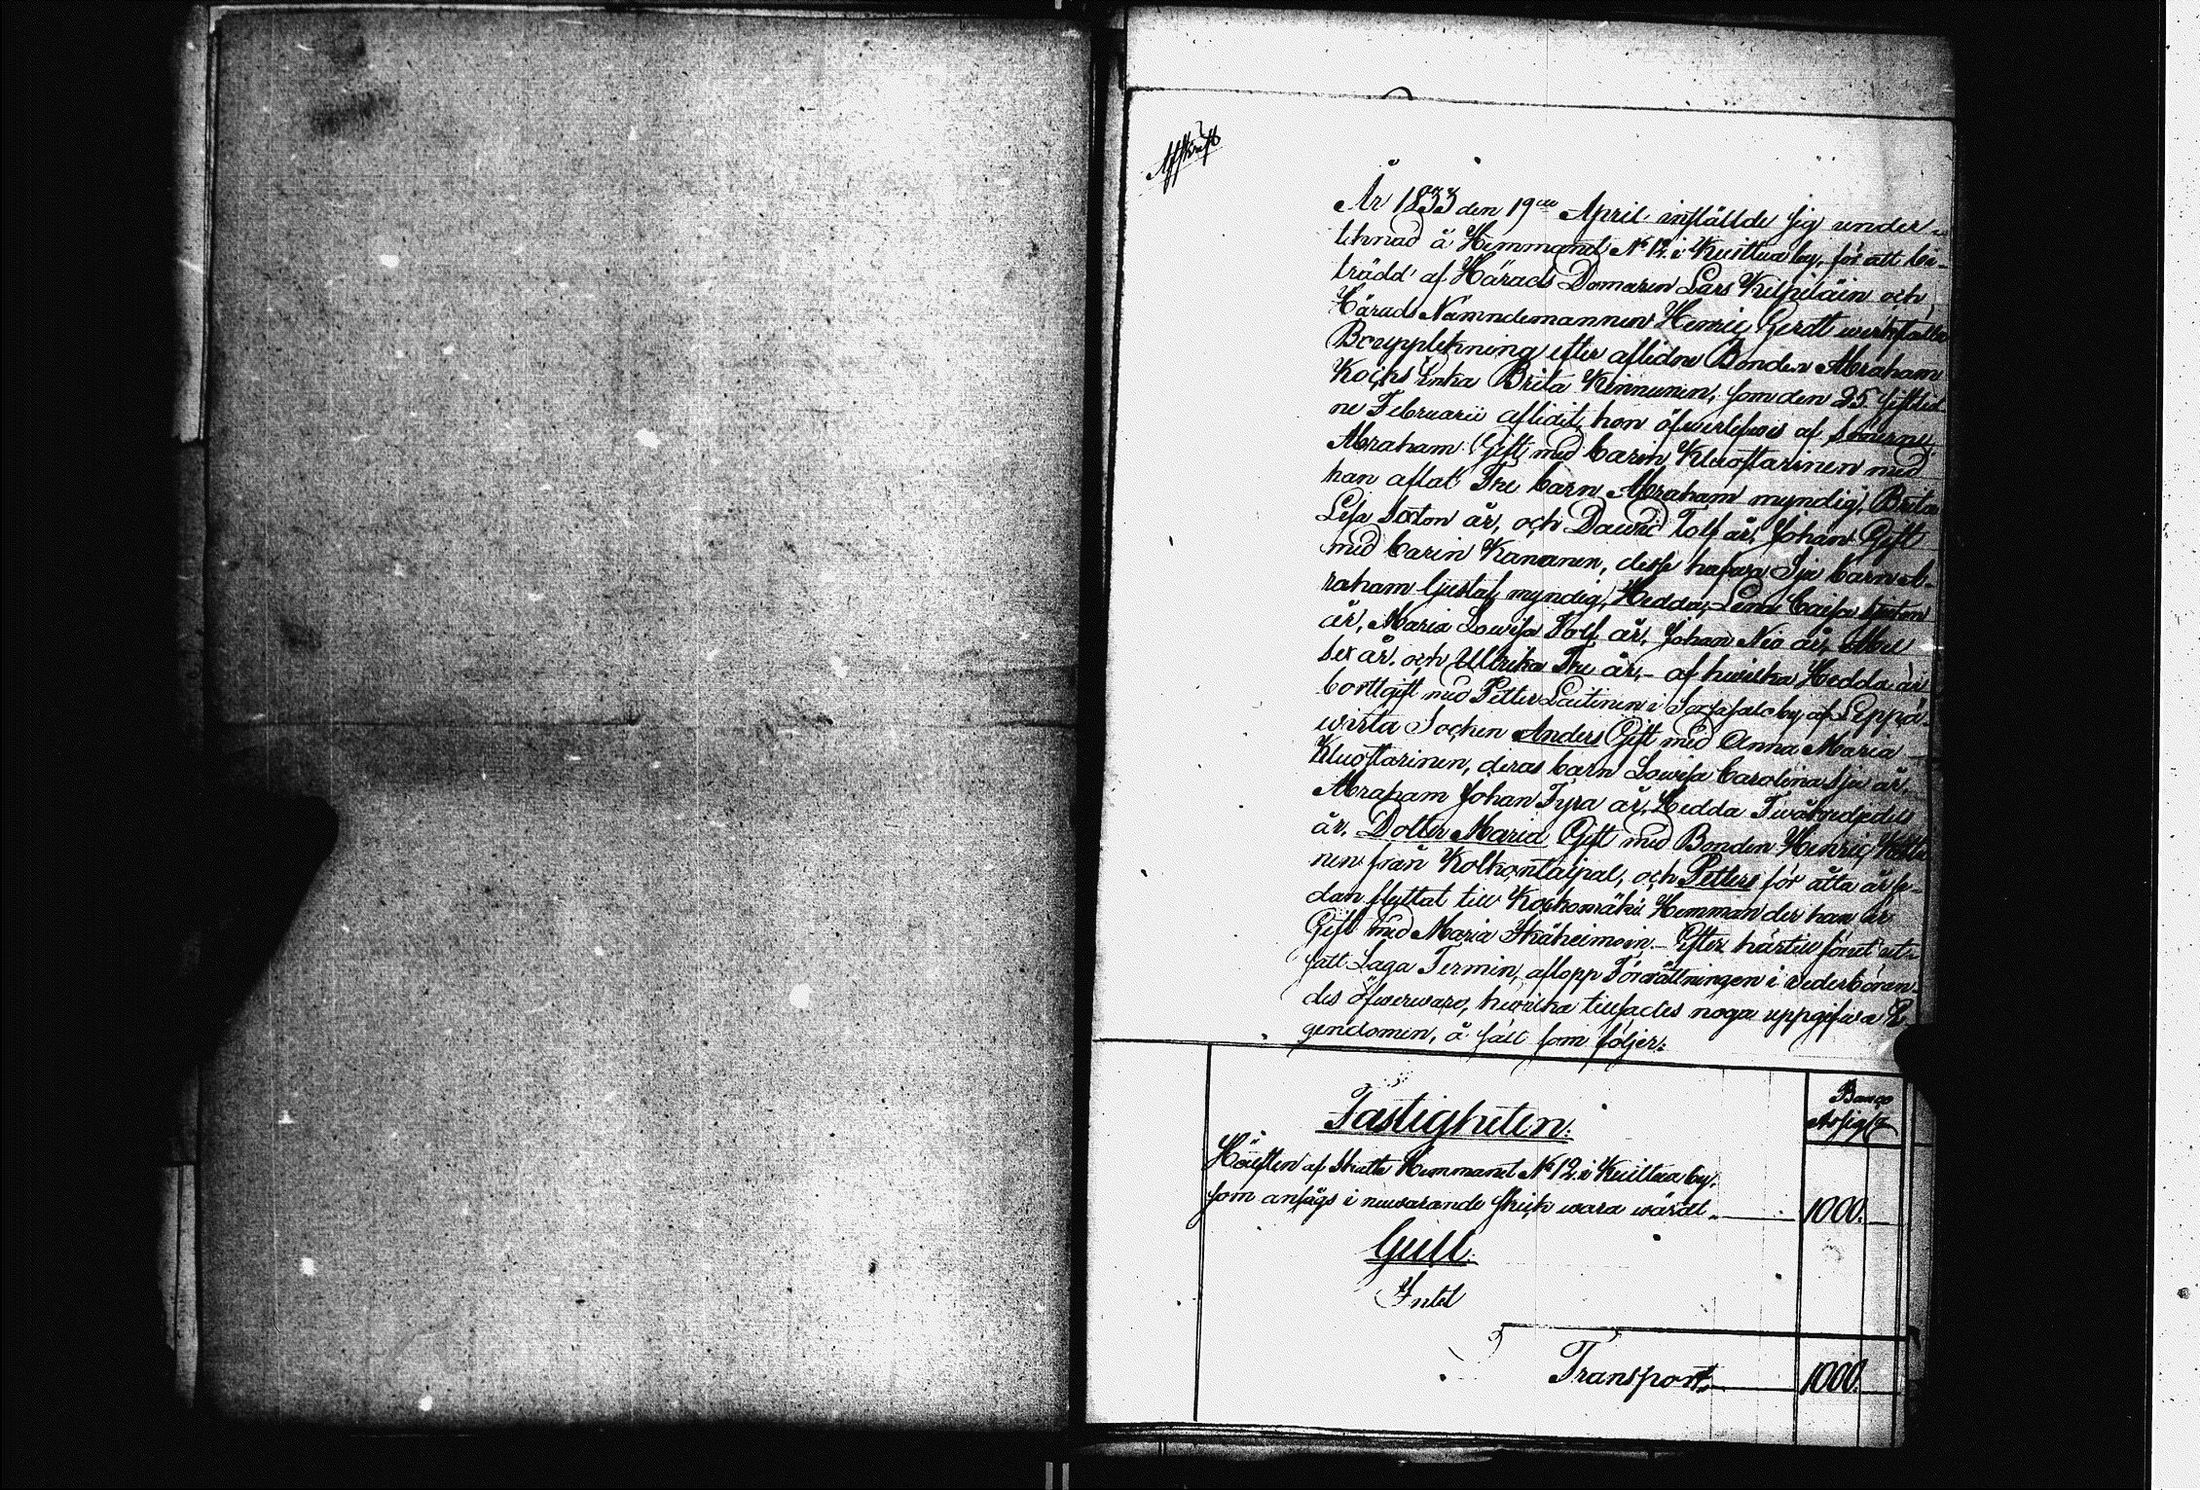 Afskrift
År 1833 den 19de April inställde sig under-
teknad å Hemmanet No 12. i Kuittua by, för att bi-
trädd af Härads Domaren Lars Kilpiläin och
Härads Nämndemannen Henric Gerdt werkställa
Bouppteckning efter aflidne Bonden Abraham
Kocks Enka Brita Kinnunen, som den 25 sistlid-
ne Februarii aflidit, hon öfwerlefwes af Sönerne
Abraham Gift med Carin Kluostarinen med
han aflat Tre barn Abraham myndig, Brita
Lisa Sexton år, och Dawid Tolf år, Johan Gift
med Carin Kananen, desse hafwa Sju barn A-
raham Gustaf myndig, Hedda, Lena Caisa
år, Maria Lowisa Tolf år, Johan Nio år,
sex år, och Ullrika Tre år, – af hwilka Hedda är
bortgift med Petter Laitinen i by af Leppä-
wirta Socken Anders Gift med Anna Maria
Kluostarinen, deras barn Lowisa Carolina Sju år,
Abraham Johan Fyra år, Hedda Twåtredjedels
år. Dotter Maria Gift med Bonden Henric
nen från Kolkontaipal, och Petter för åtta år se-
dan flyttat till Koskomäki Hemman der han är
Gift med Maria . – Efter härtill förut ut-
satt Laga Termin, aflopp Förrättningen i wederböran-
des öfwerwaro, hwilka tillsades noga uppgifwa E-
gendomen, å sätt som följer:
Banco
Assigt
Fastigheten:
Hälften af Skatte Hemmanet No 12. i Kuittua by.
som ansågs i nuwarande skick wara wärdt 1000.
Gull:
Intet
Transport 1000.